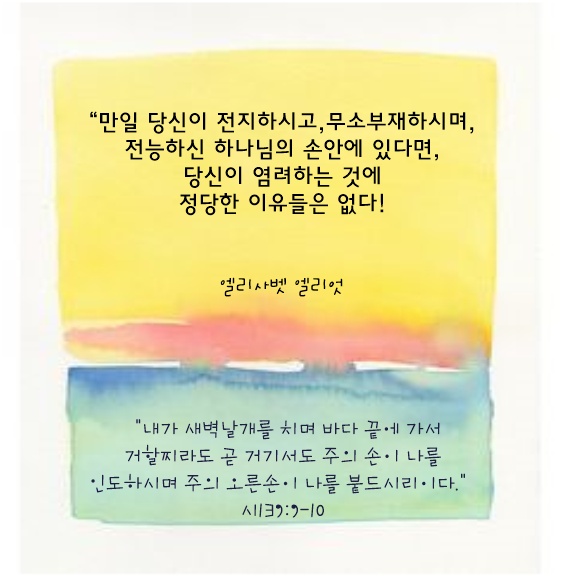 “만일 당신이 전지하시고,무소부재하시며,
전능하신 하나님의 손안에 있다면,
당신이 염려하는 것에
정당한 이유들은 없다!
엘리사벳 엘리엇
"내가 새벽날개를 치며 바다 끝에 가서
거할찌라도 곧 거기서도 주의 손이 나를
인도하시며 주의 오른손이 나를 붙드시리이다."
시139:9-10